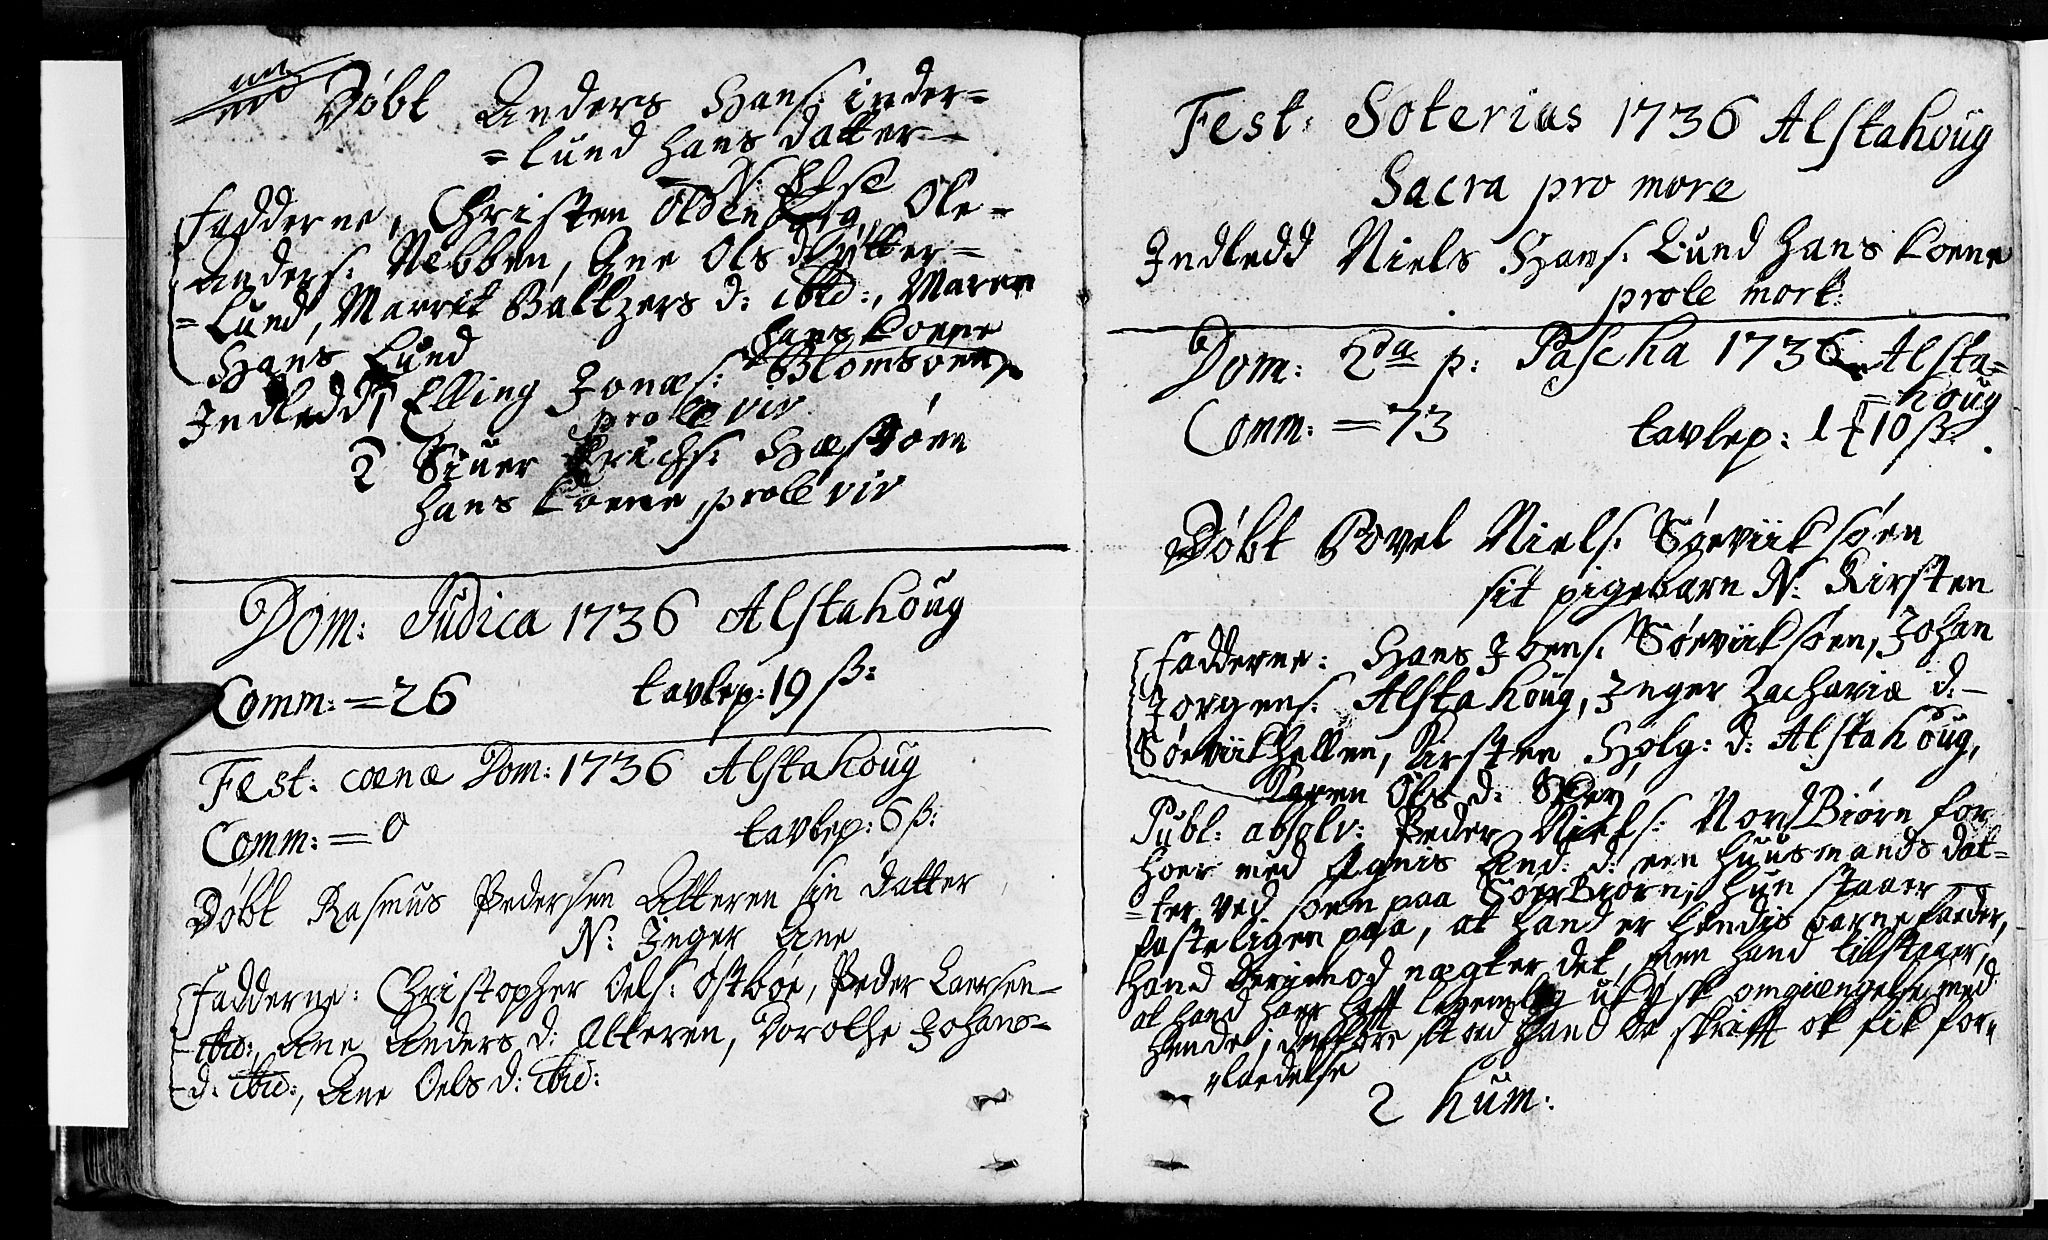 Døbt Anders Hans: inder=
=lund hans datter
N: Else
Fadderne, Christen Oldenborg, Ole
Anders: Nebben, Ane Ols d: ytter=
=Lund, Marrit Baltzers d: ibid:, Maren
Hans Lund
Indledd, Elling Jonæs: Blomsøen,
hans Koene
prole viv
2 Siuer Erichs: Hæstøen
hans Koene, prole viv
Dom: Judica 1736 Alstahoug
Comm: = 26 tavlep: 19 ß:
Fest: coenæ Dom: 1736 Alstahoug
Comm: = 0 tavlep: 6 ß:
Døbt Rasmus Pedersen Alteren sin datter
N: Inger Ane
Fadderne: Christopher Oels: Østbøe, Peder Laersen
ibid:, Ane Anders d: Alteren, Dorothe Johans=
d: ibid:, Ane Oels d: ibid:
Fest: Soterius 1736 Alstahoug
Sacra pro more
Indledd Niels Hans: Lund hans Koene
prole mort:
Dom: 2da p: Pascha 1736 Alsta=
=houg
Comm: = 73 tavlep: 1 10 ß:
Døbt Povel Niels: Søeviiksøen
sit pigebarn N: Kirsten
Fadderne: Hans Joens: Søeviiksøen, Johan
Jorgens: Alstahoug, Inger Zachariæ d:
Søeviikhellen, Kirsten Holg: d: Alstahoug,
Karen Ols d:
Publ: absolv: Peder Niels: NordBiørn for
hoer med Agnis And: d: een huusmands dat=
=ter ved soen paa SøerBiørn, hun staaer
fasteligen paa, at hand er hendis barnefaeder,
hand derimod nægter det, men hand tillstaaer,
at hand haer hafft ukysk omgiængelse med
hende, derfore stoed hand da skrifft ok fik for=
=laedelse
2 hum: